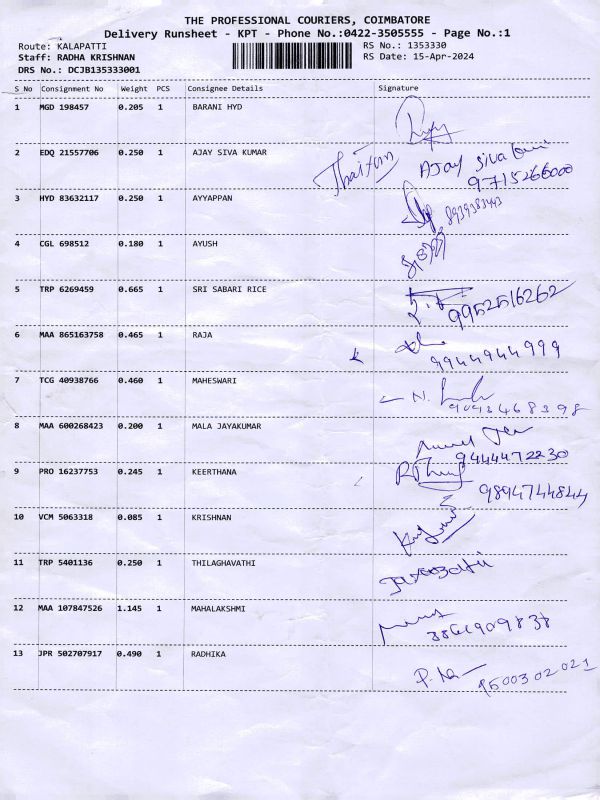 THE PROFESSIONAL COURIERS, COIMBATORE
Delivery Runsheet - KPT - Phone No.:0422-3505555 - Page No.:1
Route: KALAPATTI RS No.: 1353330
Staff: RADHA KRISHNAN RS Date: 15-Apr-2024
DRS No.: DCJB135333001
S No Consignment No Weight PCS Consignee Details Signature
1 MGD 198457 0.205 1 BARANI HYD
2 EDQ 21557706 0.250 1 AJAY SIVA KUMAR Ajay Siva
9715266000
3 HYD 83632117 0.250 1 AYYAPPAN 8939383443
4 CGL 698512 0.180 1 AYUSH
5 TRP 6269459 0.665 1 SRI SABARI RICE
9952516262
6 MAA 865163758 0.465 1 RAJA
9944944999
7 TCG 40938766 0.460 1 MAHESWARI N.
8 MAA 600268423 0.200 1 MALA JAYAKUMAR
9444472230
9 PRO 16237753 0.245 1 KEERTHANA
9894744844
10 VCM 5063318 0.085 1 KRISHNAN
11 TRP 5401136 0.250 1 THILAGHAVATHI
12 MAA 107847526 1.145 1 MAHALAKSHMI
13 JPR 502707917 0.490 1 RADHIKA